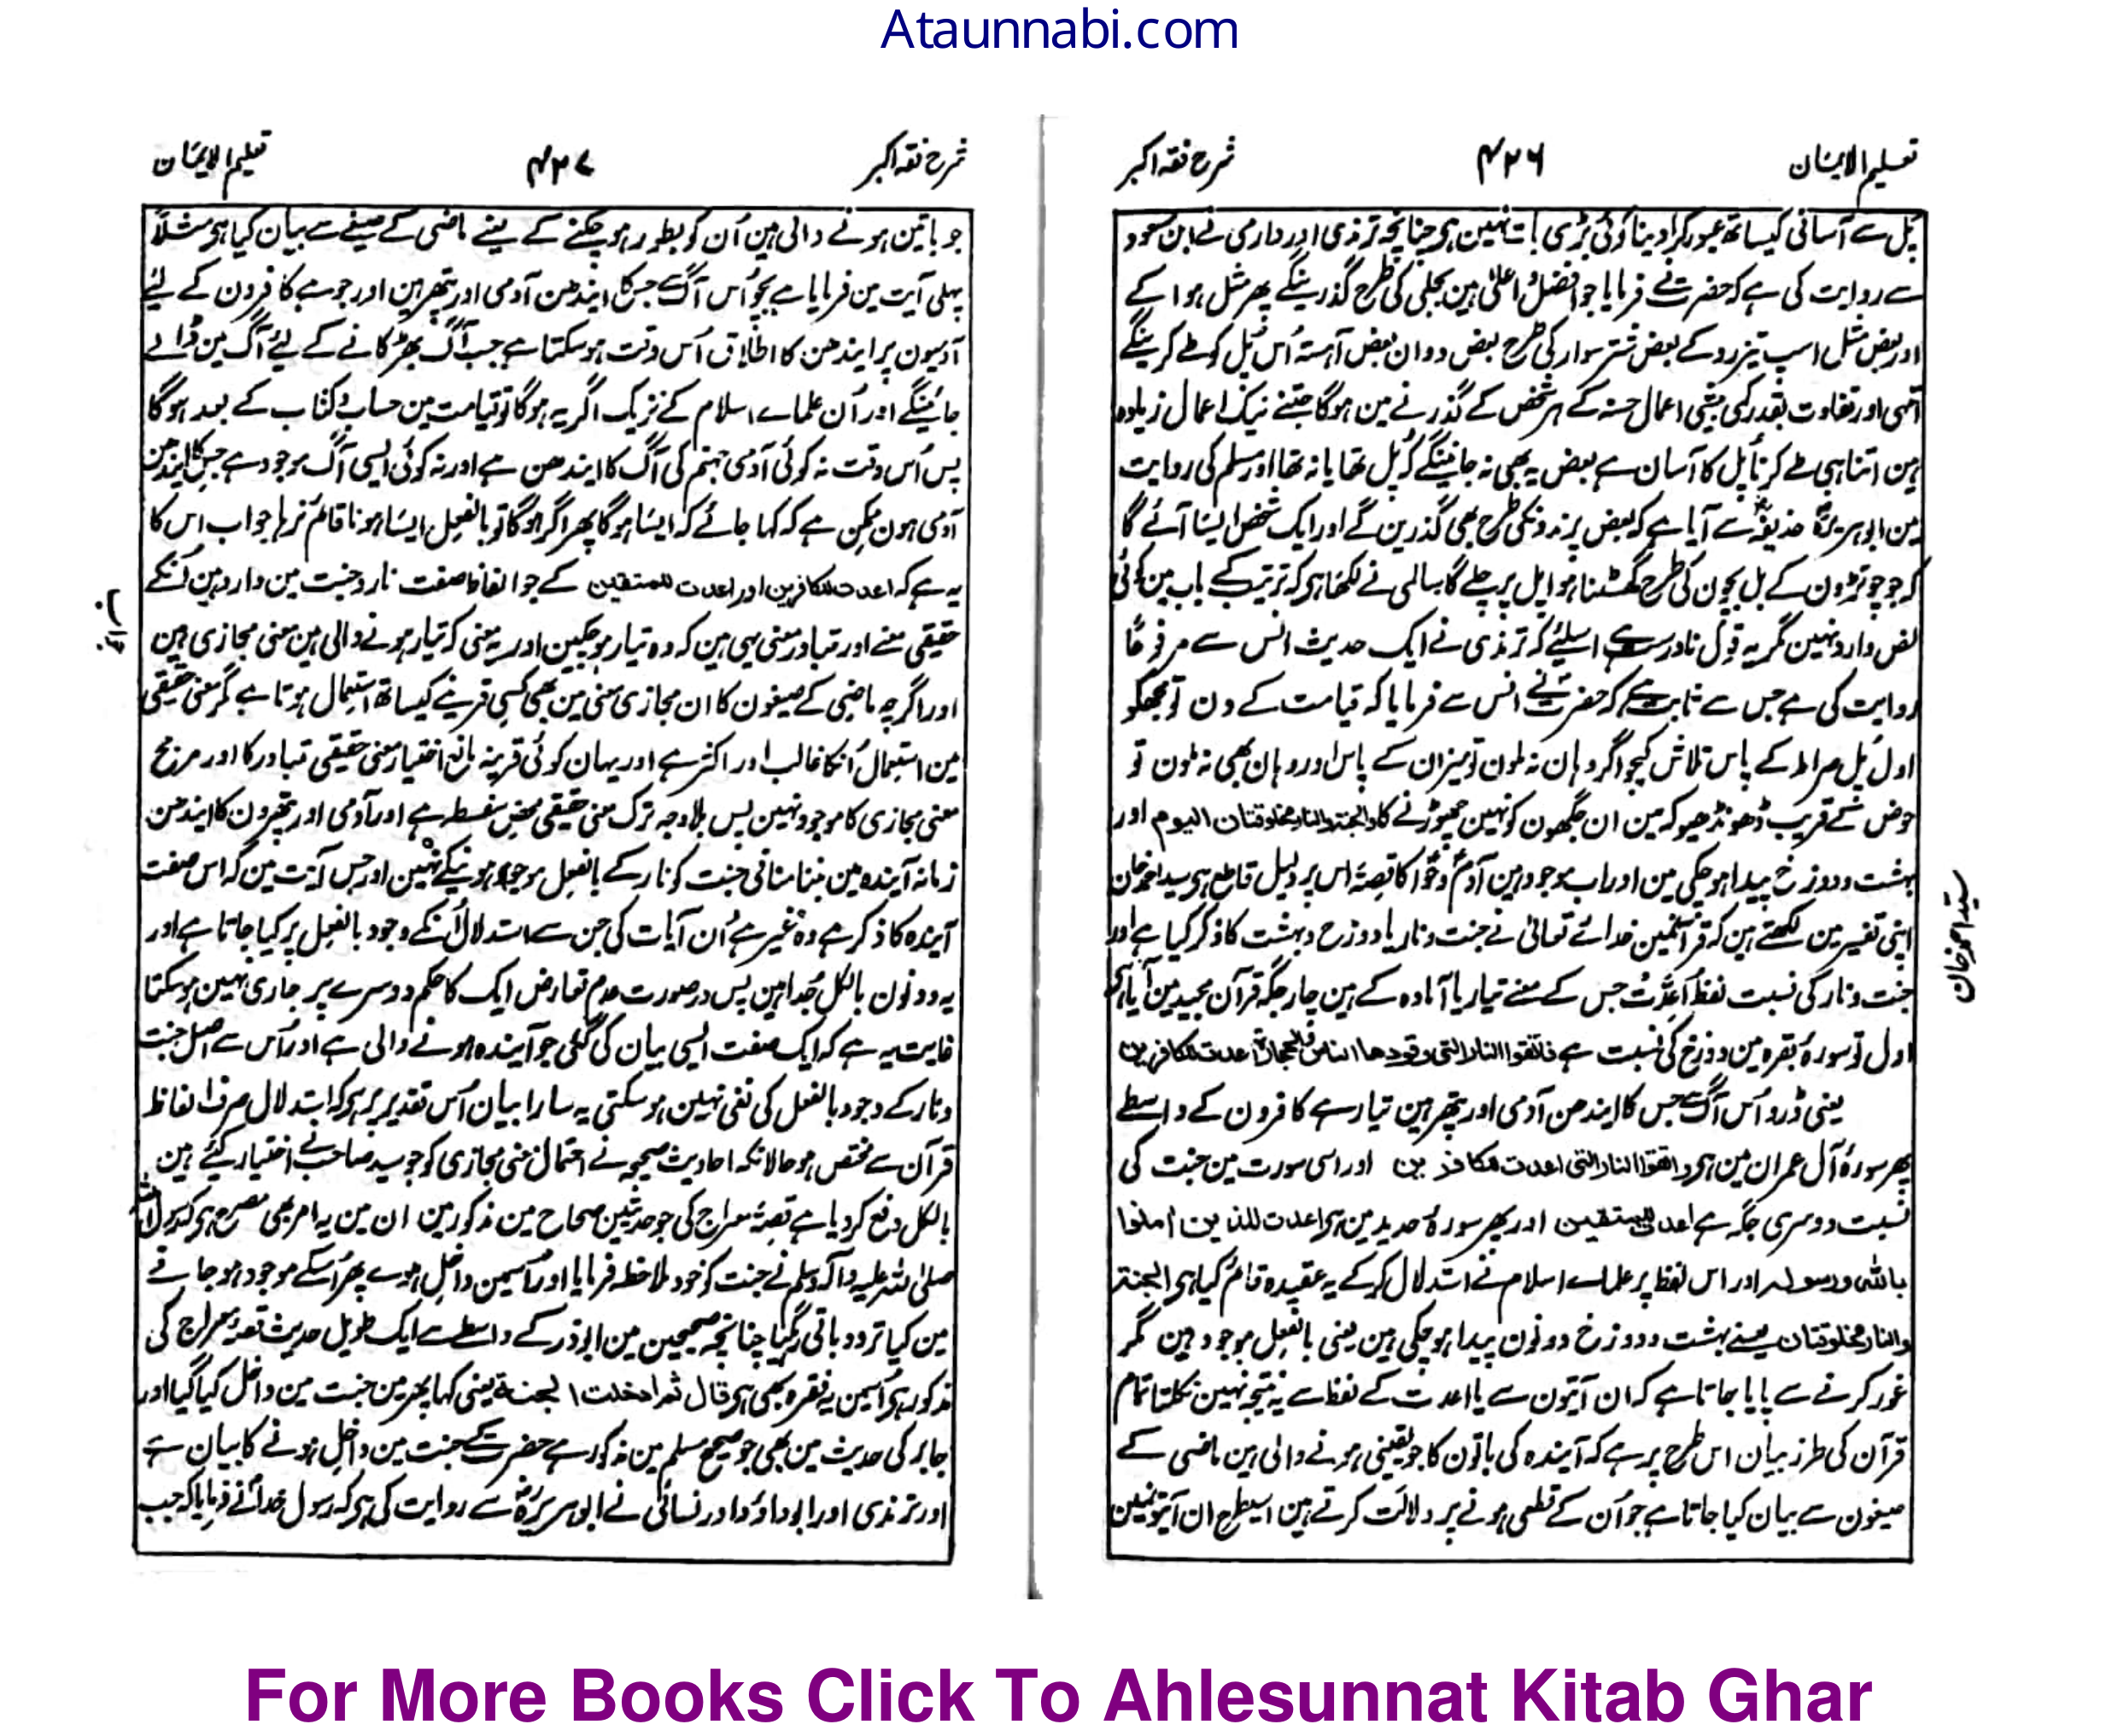 Ataunnabi.com
تعلیم الایمان
۴۲۶
شرح فقہ اکبر
پل سے آسانی کیساتھ عبور کرا دینا کوئی بڑی بات نہین ہی چنانچہ ترمذی اور دارمی نے ابن مسعود
سے روایت کی ہے کہ حضرت نے فرمایا جو افضل و اعلیٰ ہین بجلی کی طرح گذرینگے پھر مثل ہوا کے
اور بعض مثل اسپ تیز رو کے بعض شتر سوار کی طرح بعض دوان بعض آہستہ اُس پُل کو طے کرینگے
انتہی اور تفاوت بقدر کمی بیشی اعمال حسنہ کے ہر شخص کے گذرنے مین ہوگا جتنے نیک اعمال زیادہ
ہین اتنا ہی طے کرنا پُل کا آسان ہے بعض یہ بھی نہ جانینگے کہ پُل تھا یا نہ تھا اور مسلم کی روایت
مین ابو ہریرہؓ حذیفہؓ سے آیا ہے کہ بعض پرندونکی طرح بھی گذرین گے اور ایک شخص ایسا آئے گا
کہ جو چوتڑون کے بل بچون کی طرح گھسٹتا ہوا پل پر چلے گا سالمی نے لکھا ہی کہ ترتیب کے باب مین کوئی
نص وارد نہین مگر یہ قول نادرست ہے اسلئے کہ ترمذی نے ایک حدیث انس سے مرفوعًا
روایت کی ہے جس سے ثابت ہے کہ حضرت نے انس سے فرمایا کہ قیامت کے دن تو مجھکو
اول پُل صراط کے پاس تلاش کیجیو اگر وہان نہ ملون تو میزان کے پاس اور وہان بھی نہ ملون تو
حوض کے قریب ڈھونڈھیو کہ مین ان جگھون کو نہین چھوڑنے کا والجنۃ والنار مخلوقتان الیوم اور
بہشت و دوزخ پیدا ہوچکی مین اور اب موجود ہین آدمؑ و حوّا کا قصہ اس پر دلیل قاطع ہی سید احمد خان
اپنی تفسیر مین لکھتے ہین کہ قرآنمین خدائے تعالیٰ نے جنت و نار یا دوزخ و بہشت کا ذکر کیا ہے اور
جنت و نار کی نسبت لفظ اُعِدَّت جس کے معنے تیار یا آمادہ کے ہین چار جگہ قرآن مجید مین آیا ہی
اول تو سورۂ بقرہ مین دوزخ کی نسبت ہے فاتقوا النار التی وقودها الناس والحجارة اعدت للکافرین
یعنی ڈرو اُس آگ سے جس کا ایندھن آدمی اور پتھر ہین تیار ہے کافرون کے واسطے
پھر سورۂ آل عمران مین ہی واتقوا النار التی اعدت للکافرین اور اسی سورت مین جنت کی
نسبت دوسری جگہ ہے اعدت للمتقین اور پھر سورۂ حدید مین ہی اعدت للذین اٰمنوا
باللہ ورسولہ اور اس لفظ پر علمائے اسلام نے استدلال کرکے یہ عقیدہ قائم کیا ہی الجنۃ
والنار مخلوقتان یعنے بہشت و دوزخ دونون پیدا ہوچکی ہین یعنی بالفعل موجود ہین مگر
غور کرنے سے پایا جاتا ہے کہ ان آیتون سے یا اعدت کے لفظ سے یہ نتیجہ نہین نکلتا تمام
قرآن کی طرز بیان اس طرح پر ہے کہ آیندہ کی باتون کا جو یقینی ہونے والی ہین ماضی کے
صیغون سے بیان کیا جاتا ہے جو اُن کے قطعی ہونے پر دلالت کرتے ہین اسیطرح ان آیتونمین
سید احمد خان
شرح فقہ اکبر
۴۲۷
تعلیم الایمان
جو باتین ہونے والی ہین اُن کو بطور ہوچکنے کے یعنے ماضی کے صیغے سے بیان کیا ہی مثلاً
پہلی آیت مین فرمایا ہے بچو اُس آگ سے جسکا ایندھن آدمی اور پتھر ہین اور جو ہے کافرون کے لئے
آدمیون پر ایندھن کا اطلاق اُس وقت ہوسکتا ہے جب آگ بھڑکانے کے لئے آگ مین ڈالے
جائینگے اور اُن علمائے اسلام کے نزدیک اگر یہ ہوگا تو قیامت مین حساب و کتاب کے بعد ہوگا
پس اُس وقت نہ کوئی آدمی جہنم کی آگ کا ایندھن ہے اور نہ کوئی ایسی آگ موجود ہے جسکا ایندھن
آدمی ہون ممکن ہے کہ کہا جائے کہ ایسا ہوگا پھر اگر ہوگا تو بالفعل ایسا ہونا قائم نرہا جواب اس کا
یہ ہے کہ اعدت للکافرین اور اعدت للمتقین کے جو الفاظ صفت نار و جنت مین وارد ہین اُنکے
حقیقی معنے اور متبادر معنی یہی ہین کہ وہ تیار ہوچکین اور یہ معنی کہ تیار ہونے والی ہین معنی مجازی ہین
اور اگرچہ ماضی کے صیغون کا ان مجازی معنی مین بھی کسی قرینے کیساتھ استعمال ہوتا ہے مگر معنی حقیقی
مین استعمال اُنکا غالب اور اکثر ہے اور یہان کوئی قرینہ مانع اختیار معنی حقیقی متبادر کا اور مرجح
معنی مجازی کا موجود نہین پس بلا وجہ ترک معنی حقیقی محض سفسطہ ہے اور آدمی اور پتھرون کا ایندھن
زمانہ آیندہ مین بننا منافی جنت و نار کے بالفعل موجود ہونیکے نہین اور جس آیت مین کہ اس صفت
آیندہ کا ذکر ہے وہ غیر ہے اُن آیات کی جن سے استدلال اُنکے وجود بالفعل پر کیا جاتا ہے اور
یہ دونون بالکل جُدا ہین پس در صورت عدم تعارض ایک کا حکم دوسرے پر جاری نہین ہوسکتا
غایت یہ ہے کہ ایک صفت ایسی بیان کی گئی جو آیندہ ہونے والی ہے اور اُس سے اصل جنت
و نار کے وجود بالفعل کی نفی نہین ہوسکتی یہ سارا بیان اُس تقدیر پر ہی کہ استدلال صرف الفاظ
قرآن سے مختص ہو حالانکہ احادیث صحیحہ نے احتمال معنی مجازی کو جو سید صاحب نے اختیار کئے ہین
بالکل دفع کردیا ہے قصۂ معراج کی جو حدیثین صحاح مین مذکور ہین ان مین یہ امر بھی مصرح ہی کہ رسول اللہ
صلی اللہ علیہ وآلہ وسلم نے جنت کو خود ملاحظہ فرمایا اور اُسمین داخل ہوے پھر اُسکے موجود ہو جانے
مین کیا تردد باقی رہ گیا چنانچہ صحیحین مین ابوذر کے واسطے سے ایک طویل حدیث قصۂ معراج کی
مذکور ہی اُسمین یہ فقرہ بھی ہی قال ثم ادخلت الجنة یعنی کہا پھر مین جنت مین داخل کیا گیا اور
جابر کی حدیث مین بھی جو صحیح مسلم مین مذکور ہے حضرت کے جنت مین داخل ہونے کا بیان ہے
اور ترمذی اور ابو داؤد اور نسائی نے ابو ہریرہؓ سے روایت کی ہی کہ رسول خدا نے فرمایا کہ جب
For More Books Click To Ahlesunnat Kitab Ghar